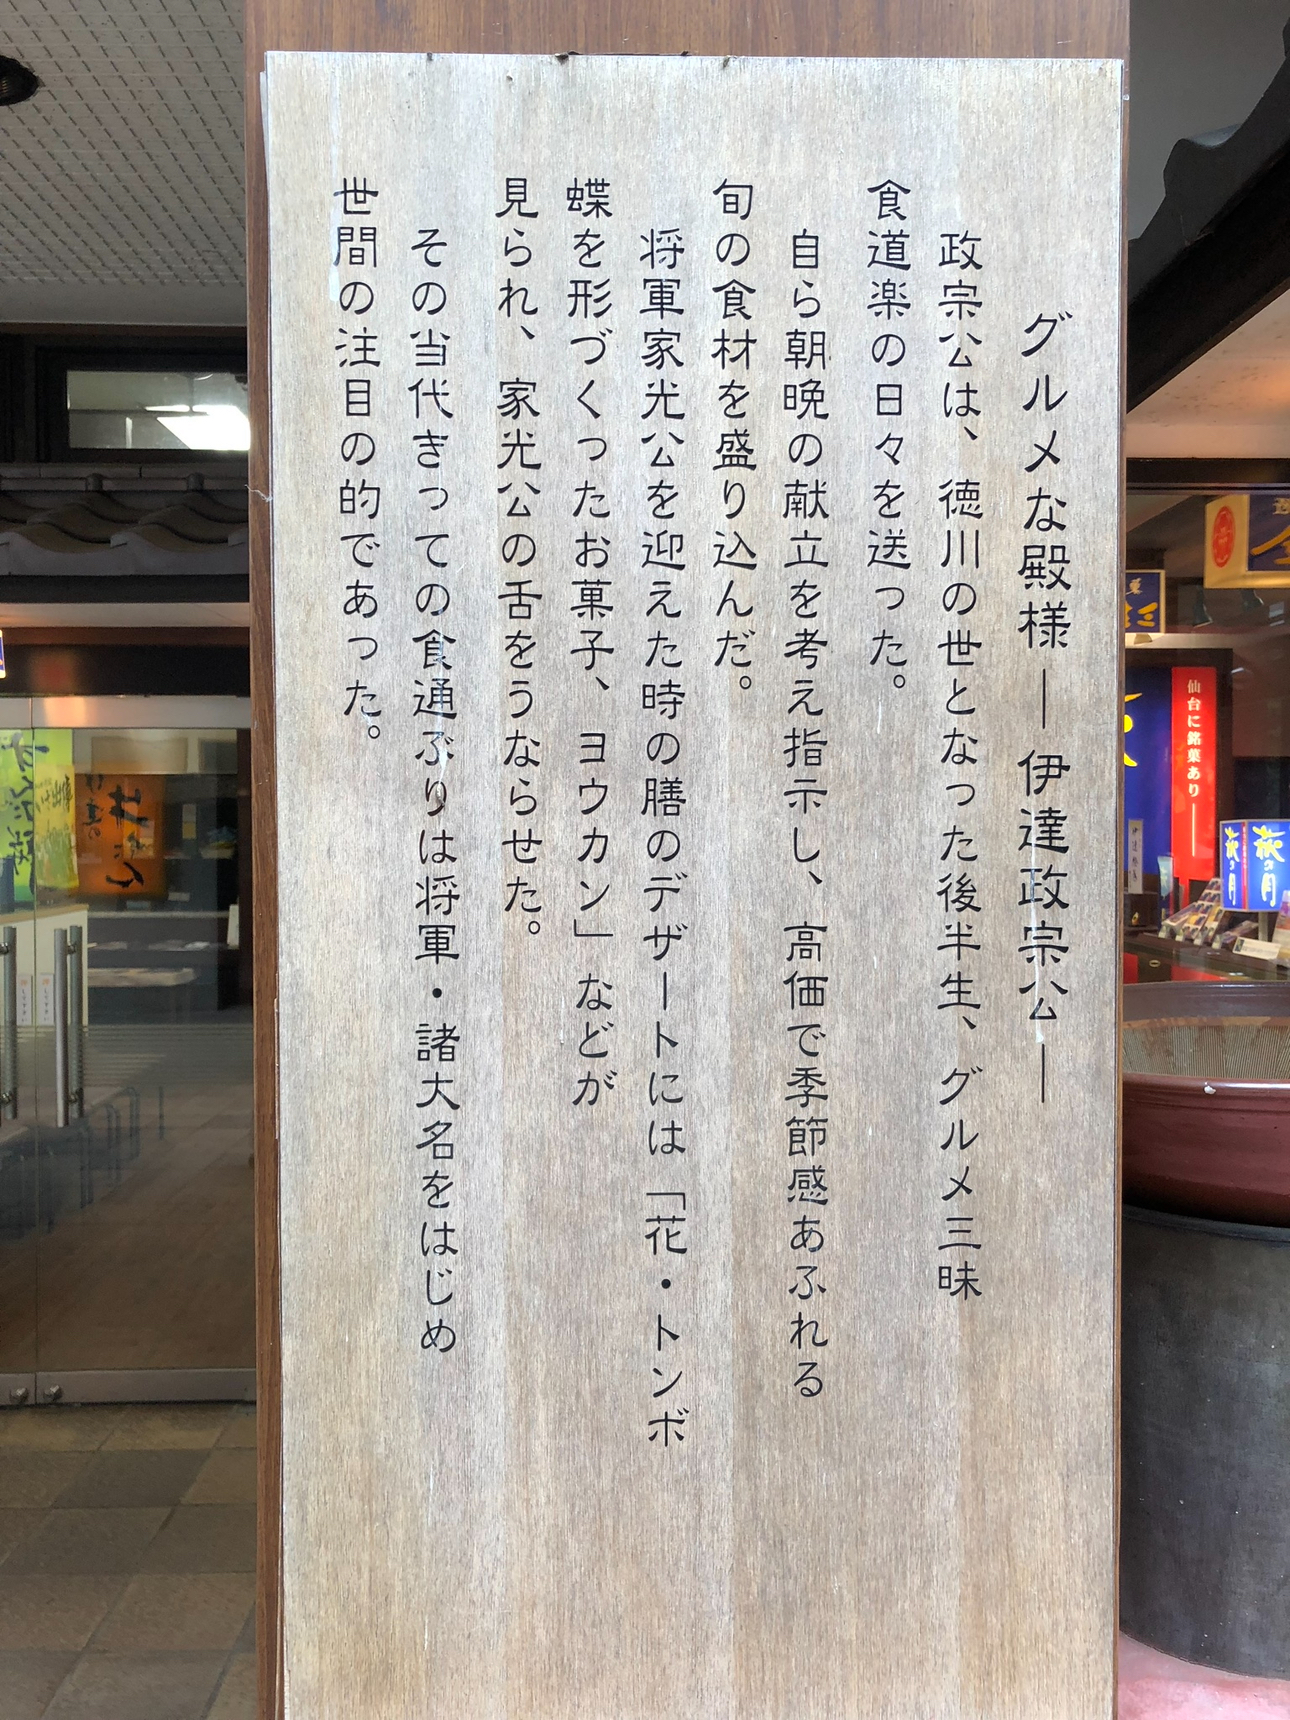 グルメな殿様 ― 伊達政宗公 ―
政宗公は、徳川の世となった後半生、グルメ三昧
食道楽の日々を送った。
自ら朝晩の献立を考え指示し、高価で季節感あふれる
旬の食材を盛り込んだ。
将軍家光公を迎えた時の膳のデザートには「花・トンボ
蝶を形づくったお菓子、ヨウカン」などが
見られ、家光公の舌をうならせた。
その当代きっての食通ぶりは将軍・諸大名をはじめ
世間の注目の的であった。
仙台に銘菓あり―
萩の月
萩の月